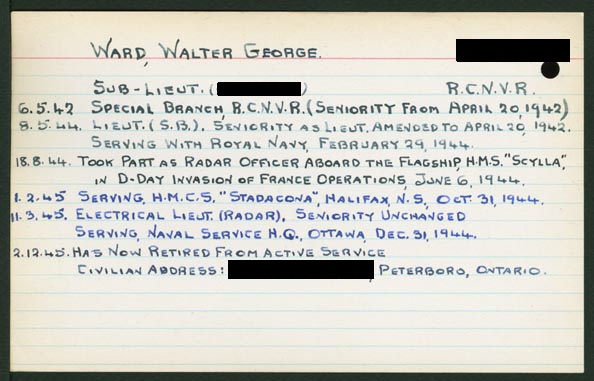 WARD, WALTER GEORGE.
SUB-LIEUT. ( ) R.C.N.V.R.
6.5.42 SPECIAL BRANCH, R.C.N.V.R. (SENIORITY FROM APRIL 20, 1942)
8.5.44. LIEUT. (S.B.), SENIORITY AS LIEUT. AMENDED TO APRIL 20, 1942.
SERVING WITH ROYAL NAVY, FEBRUARY 29, 1944.
18.8.44. TOOK PART AS RADAR OFFICER ABOARD THE FLAGSHIP, H.M.S. "SCYLLA",
IN D-DAY INVASION OF FRANCE OPERATIONS, JUNE 6, 1944.
1.2.45 SERVING, H.M.C.S. "STADACONA", HALIFAX, N.S, OCT. 31, 1944.
11.3.45. ELECTRICAL LIEUT. (RADAR), SENIORITY UNCHANGED
SERVING, NAVAL SERVICE H.Q., OTTAWA, DEC. 31, 1944.
2.12.45. HAS NOW RETIRED FROM ACTIVE SERVICE
CIVILIAN ADDRESS: , PETERBORO, ONTARIO.